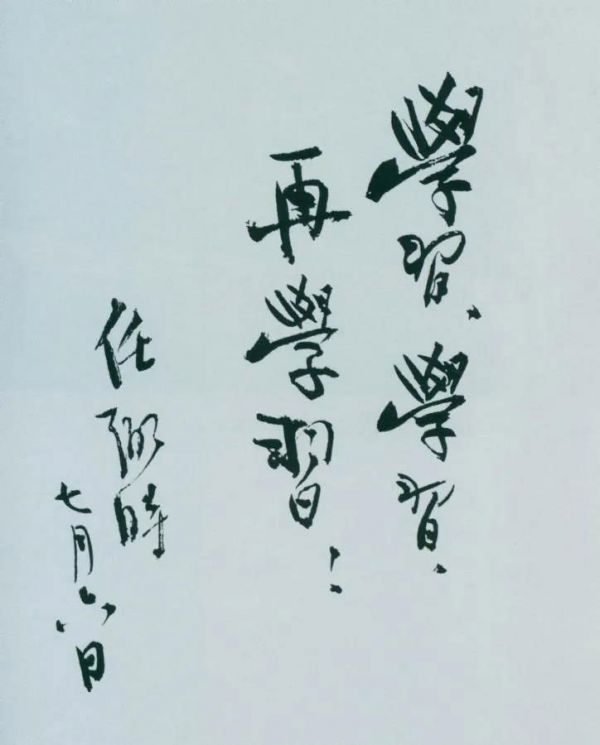 學習、學習、
再學習！
任弼時
七月六日